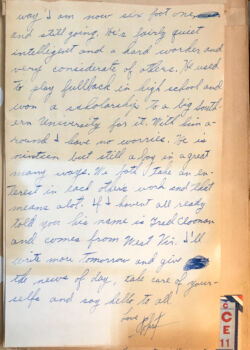 way I am now six foot one
and still going. He's a fairly quiet
intellegent and a hard worker and
very considerate of others. He used
to play fullback in high school and
won a scholarship to a big South-
ern University for it. With him a-
round I have no worries. He is
nineteen but still a boy in a great
many ways. We both take an in-
terest in each others work and that
means alot. If I havent all ready
told you his name is Fred Cloonan
and comes from West Vir. I'll
write more tomorrow and give
the news of day, take care of your-
selfs and say hello to all
Love
C
CE
11